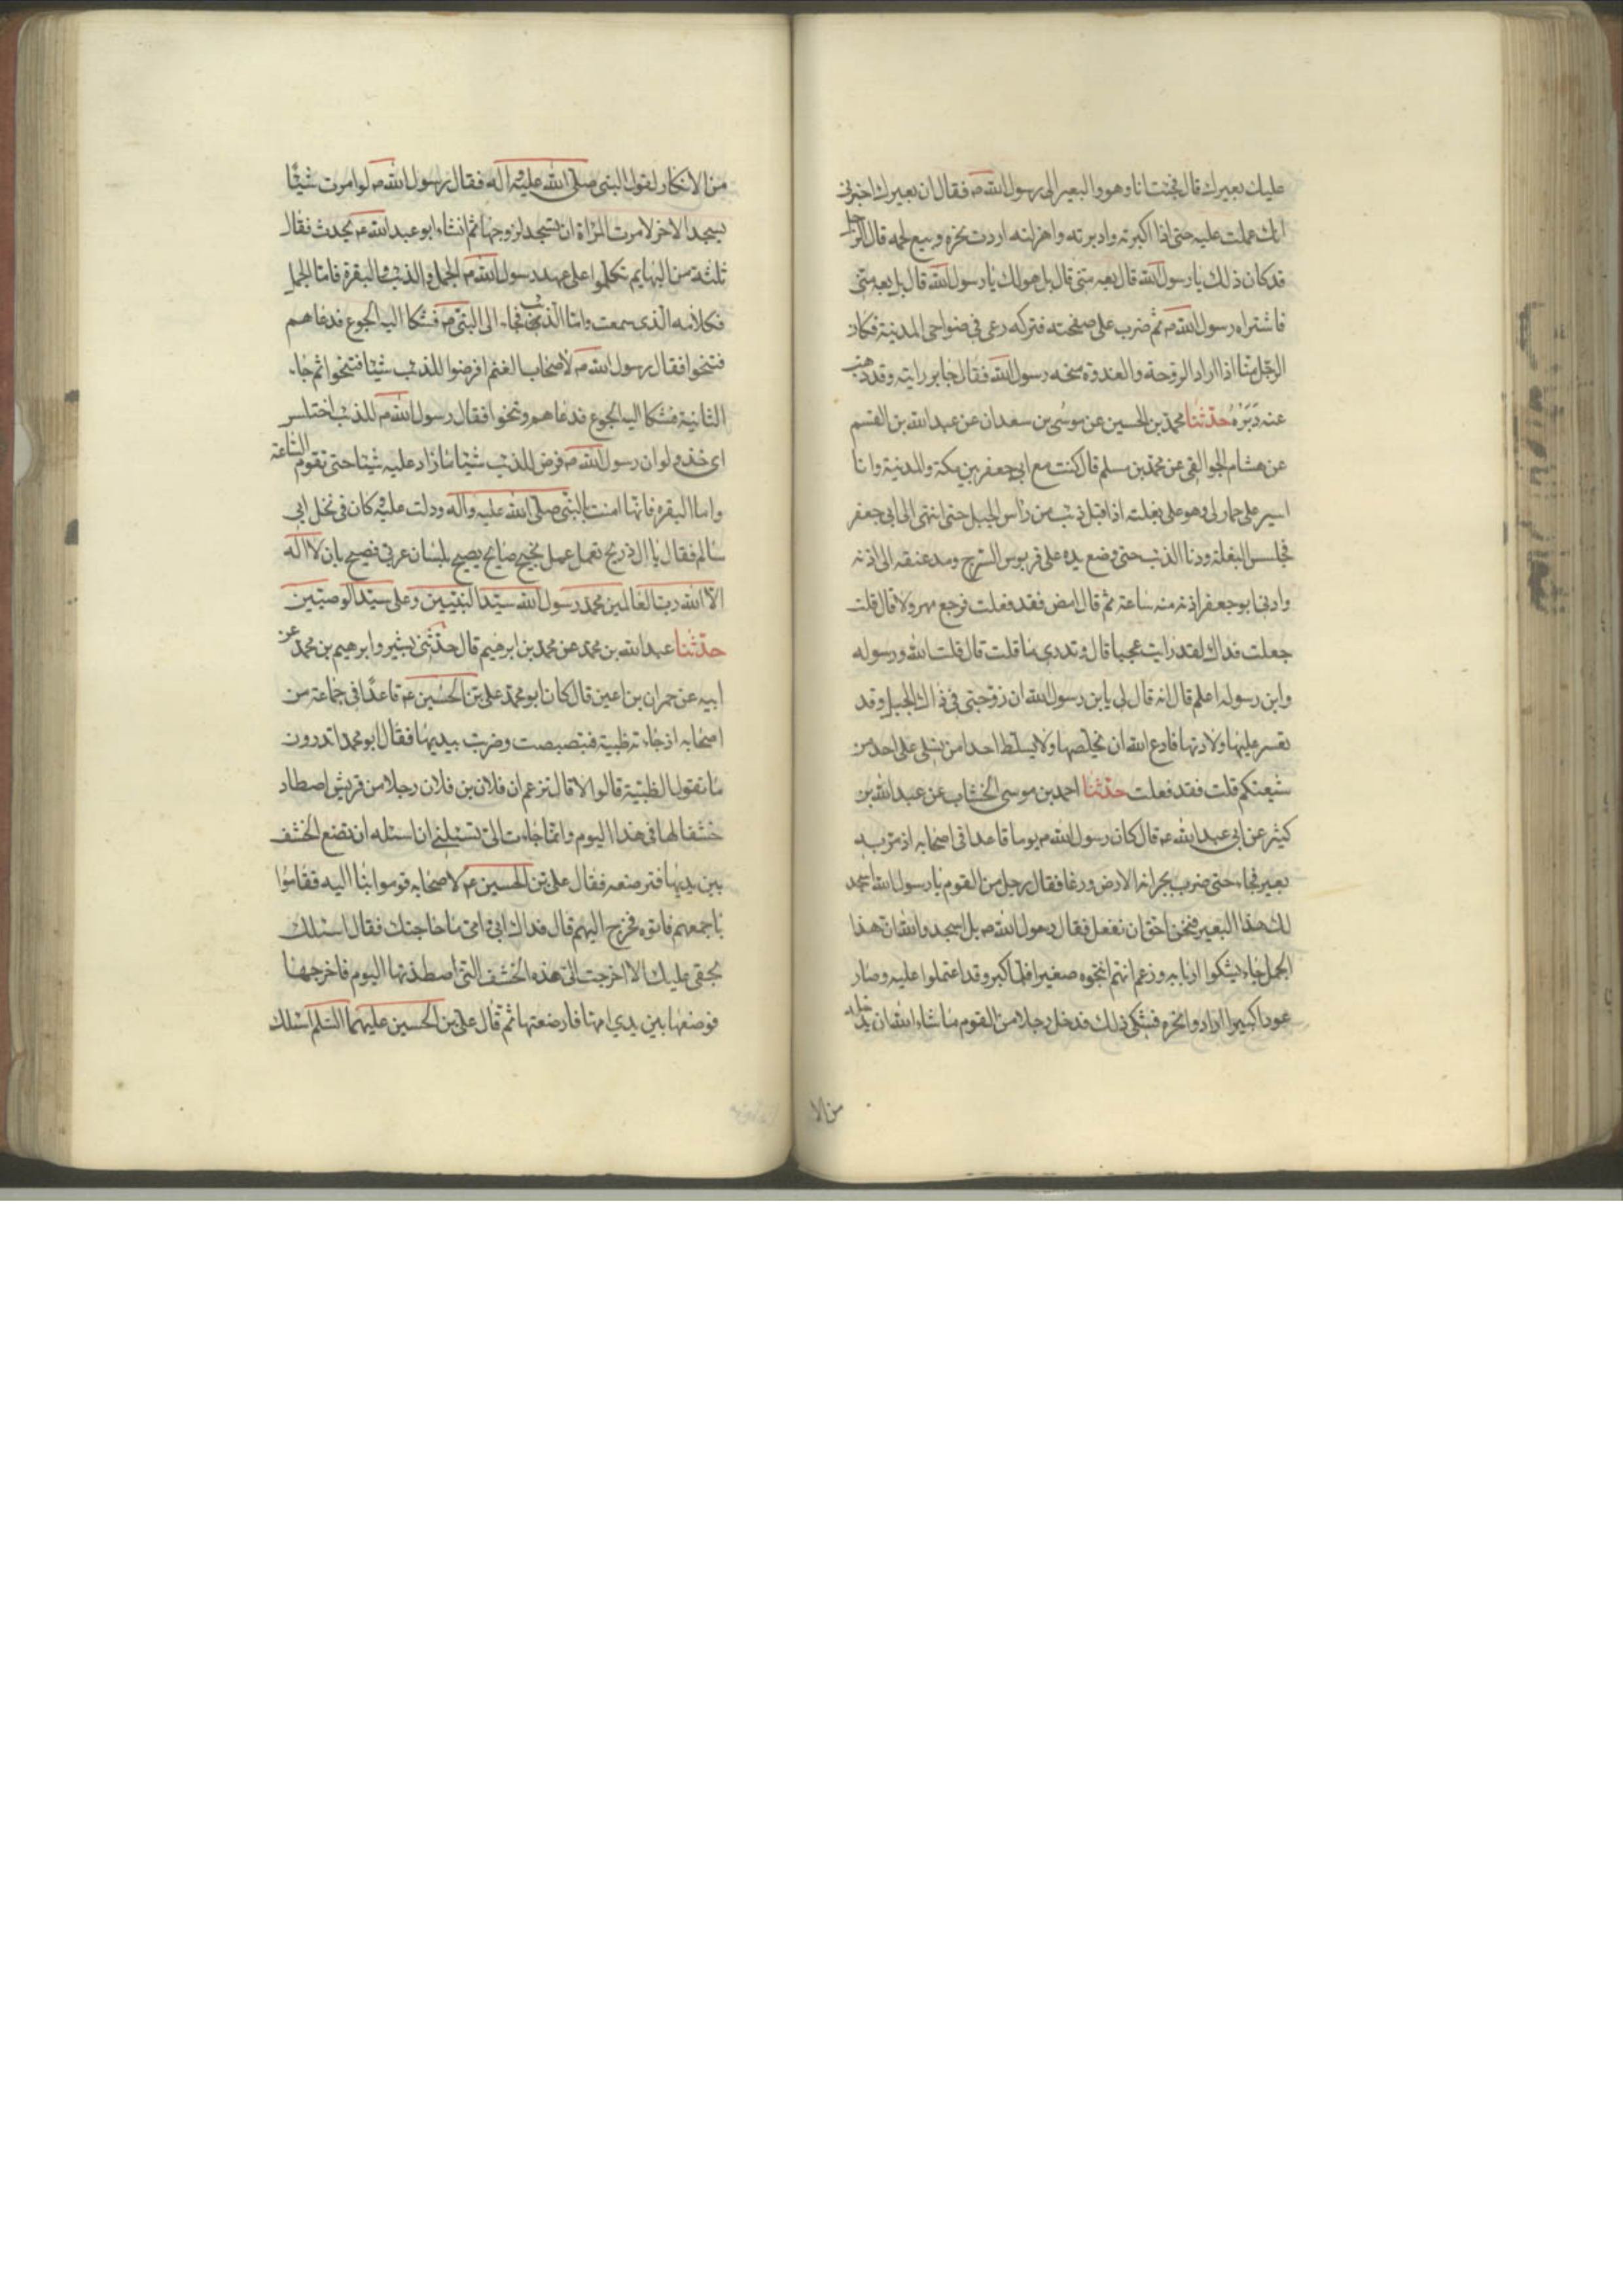 عليك بعيرك قال فجئت انا وهو والبعير الى رسول الله ص فقال ان بعيرك اخبرنى
انك عملت عليه حتى اذا اكبرته وادبرته واهزلته اردت نحره وبيع لحمه قال الرجل
قد كان ذلك يا رسول الله قال بعه منى قال بل هو لك يا رسول الله قال بل بعه منى
فاشتراه رسول الله ص ثم ضرب على صفحته فتركه رعى فى ضواحى المدينة فكان
الرجل منا اذا اراد الروحة والغدوة منحه رسول الله فقال جابر رايته وقد ذهب
عنه دَبَرُهُ حدّثنا محمد بن الحسين عن موسى بن سعدان عن عبد الله بن القسم
عن هشام الجواليقى عن محمد بن مسلم قال كنت مع ابى جعفر بين مكة والمدينة وانا
اسير على حمار لى وهو على بغلته اذ اقبل ذئب من راس الجبل حتى انتهى الى ابى جعفر
فجلس البغلة ودنا الذئب حتى وضع يده على قربوس السرج ومد عنقه الى اذنه
وادنى ابو جعفر اذنه منه ساعة ثم قال امض فقد فعلت فرجع مهرولا قال قلت
جعلت فداك لقد رايت عجبا قال وتدرى ما قلت قال قلت الله ورسوله
وابن رسوله اعلم قال انه قال لى يا بن رسول الله ان زوجتى فى ذاك الجبل وقد
تعسر عليها ولادتها فادع الله ان يخلصها ولا يسلط احدا من نسلى على احد من
شيعتكم قلت فقد فعلت حدّثنا احمد بن موسى الخشاب عن عبد الله بن
كثير عن ابى عبد الله ع قال كان رسول الله ص يوما قاعدا فى اصحابه اذ مرّ به
بعير فجاء حتى ضرب بجرانه الارض ورغا فقال رجل من القوم يا رسول الله اسجد
لك هذا البعير فنحن احق ان نفعل فقال رسول الله ص بل اسجدوا لله ان هذا
الجمل جاء يشكوا اربابه وزعم انهم انتجوه صغيرا فلما كبر وقد اعتملوا عليه وصار
عودا كبيرا ارادوا نحره فشكى ذلك فدخل رجلا من القوم ما شاء الله ان يدخله
من الا
من الانكار لقول النبى صلى الله عليه واله فقال رسول الله ص لو امرت شيئا
يسجد الاخر لامرت المراة ان تسجد لزوجها ثم انشاء ابو عبد الله ع يحدث فقال
ثلثة من البهايم تكلموا على عهد رسول الله ص الجمل والذئب والبقرة فاما الجمل
فكلامه الذى سمعت واما الذئب فجاء الى النبى ص فشكا اليه الجوع فدعاهم
فتنحوا فقال رسول الله ص لاصحاب الغنم افرضوا للذئب شيئا فتنحوا ثم جاء
الثانية فشكا اليه الجوع فدعاهم وتنحوا فقال رسول الله ص للذئب اختلس
اى خذ ولو ان رسول الله ص فرض للذئب شيئا ما زاد عليه شيئا حتى تقوم الساعة
واما البقرة فانها امنت بالنبى صلى الله عليه واله ودلت عليه كان فى نخل ابى
سالم فقال يا ال ذريح تعمل عمل نجيح صايح يصيح بلسان عربى فصيح بان لا اله
الا الله رب العالمين محمد رسول الله سيد النبيين وعلى سيد الوصيين
حدّثنا عبد الله بن محمد عن محمد بن ابرهيم قال حدّثنى بشير وابرهيم بن محمد عن
ابيه عن حمران بن اعين قال كان ابو محمد على بن الحسين ع قاعدا فى جماعة من
اصحابه اذ جاءته ظبية فتبصبصت وضربت بيديها فقال ابو محمد اتدرون
ما تقول الظبية قالوا لا قال تزعم ان فلان بن فلان رجلا من قريش اصطاد
خشفا لها فى هذا اليوم وانما جاءت الىّ تسئلنى ان اسئله ان تضع الخشف
بين يديها فترضعه فقال على بن الحسين ع لاصحابه قوموا بنا اليه فقاموا
باجمعهم فاتوه فخرج اليهم قال فداك ابى وامى ما حاجتك فقال اسئلك
بحقى عليك الا اخرجت الى هذه الخشف التى اصطدتها اليوم فاخرجها
فوضعها بين يدى امها فارضعتها ثم قال على بن الحسين عليهما السلم اسئلك